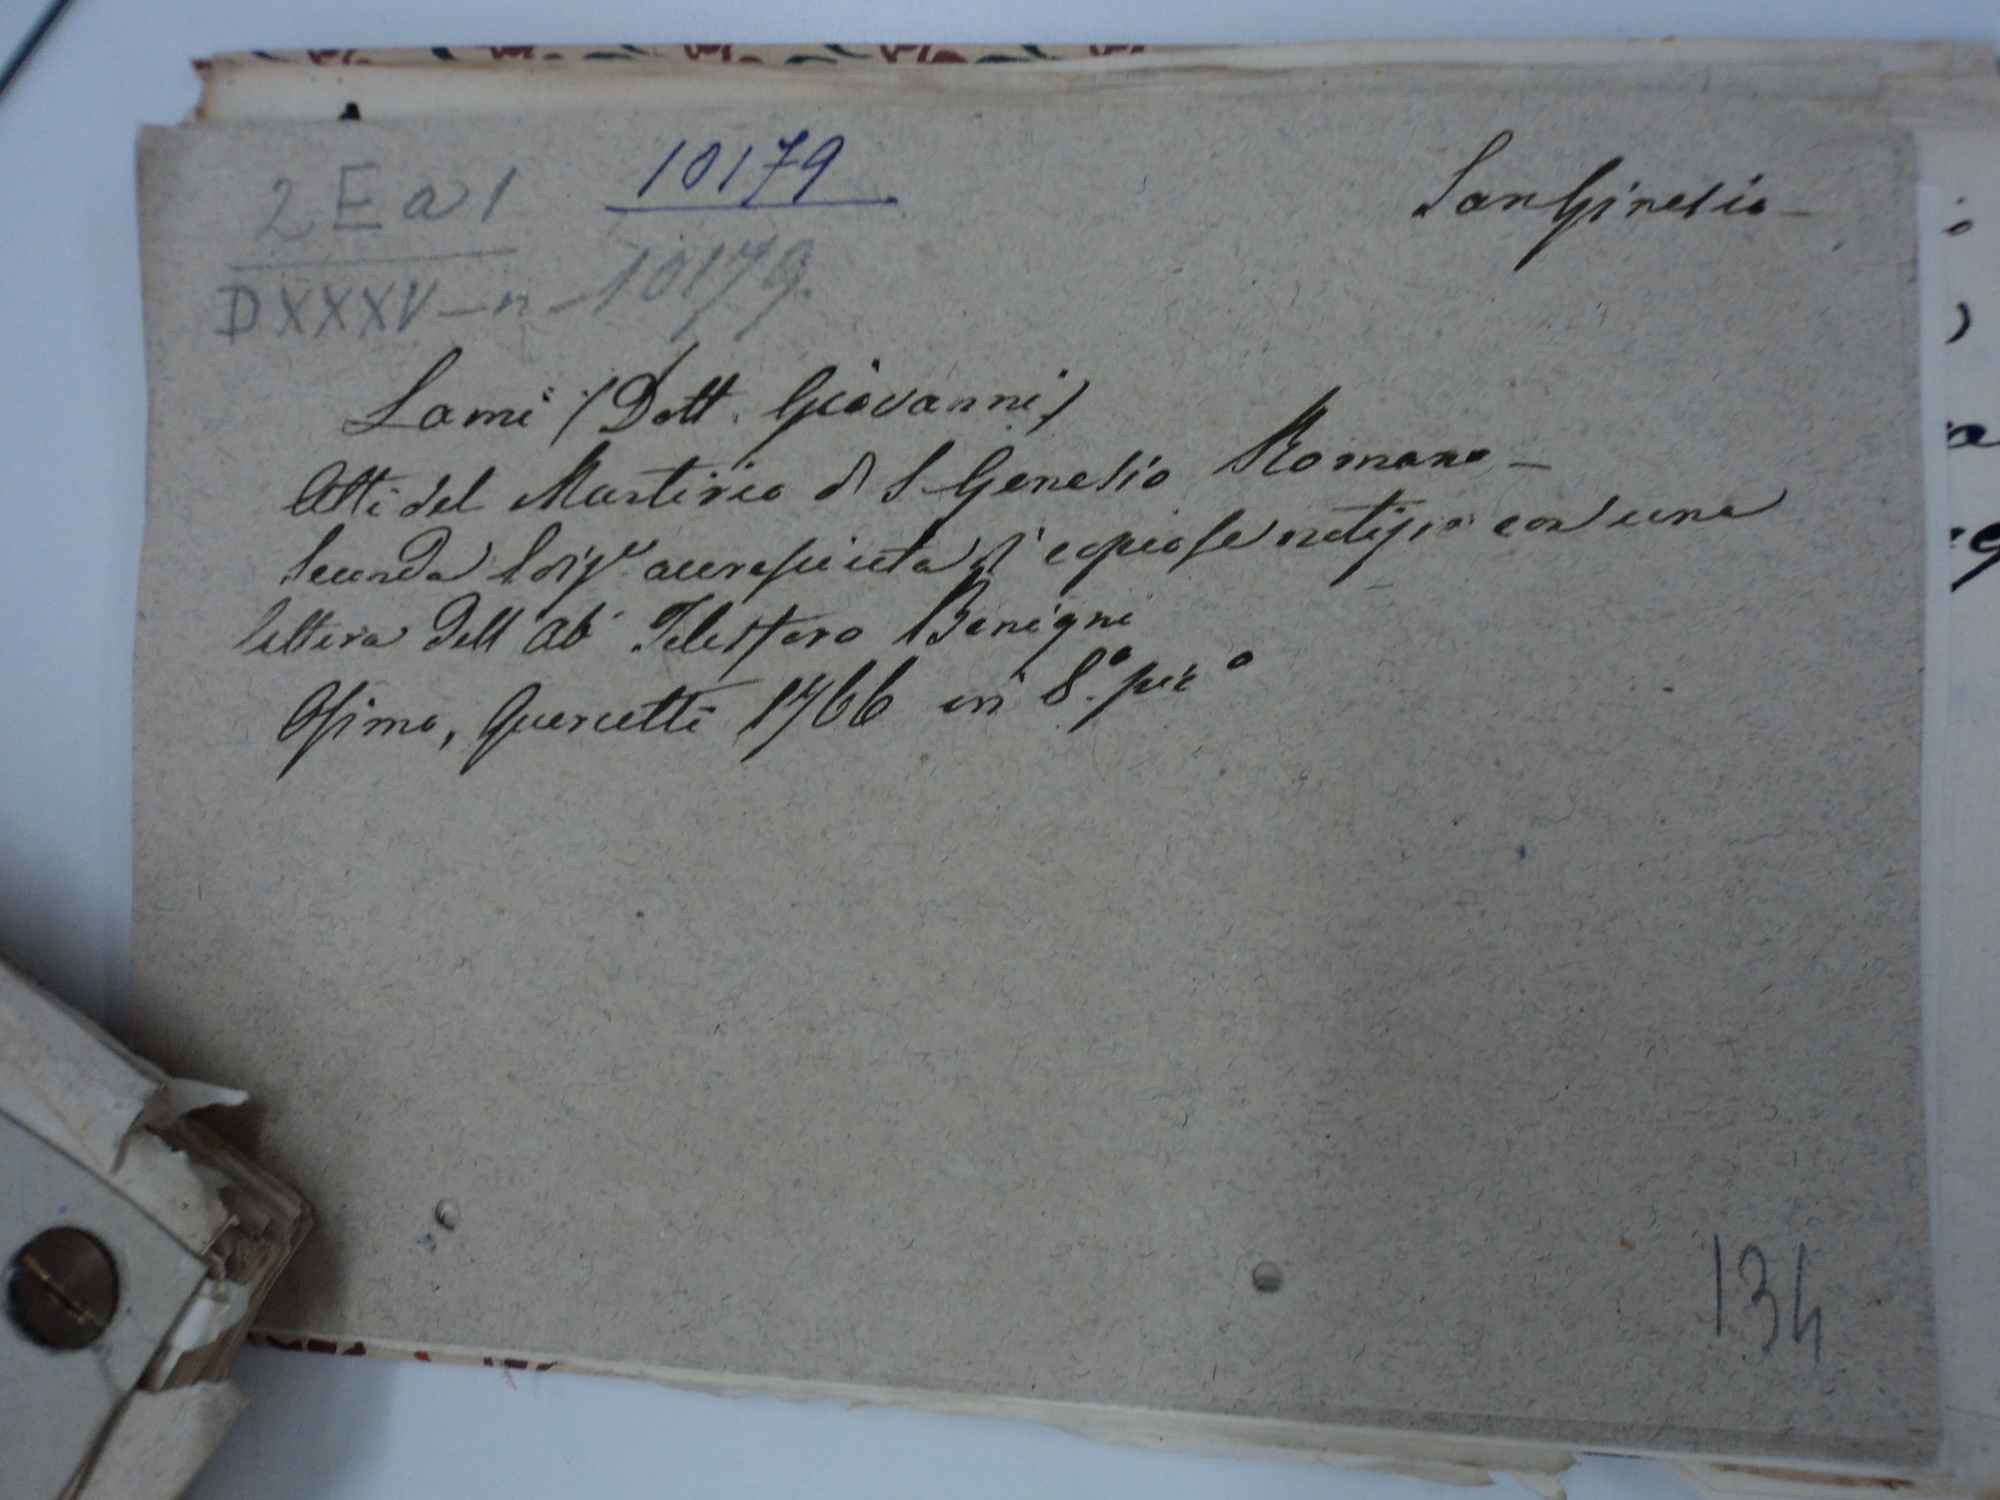 2 E a 1
10179
San Ginesio
DXXXV - n - 10179.
Lami (Dott. Giovanni)
Atti del Martirio di S. Genesio Romano -
Seconda accresciuta di copiose notizie con una
lettera dell'Ab. Telesforo Benigni
Osimo, Quercetti 1766 in 8.° pic°
134